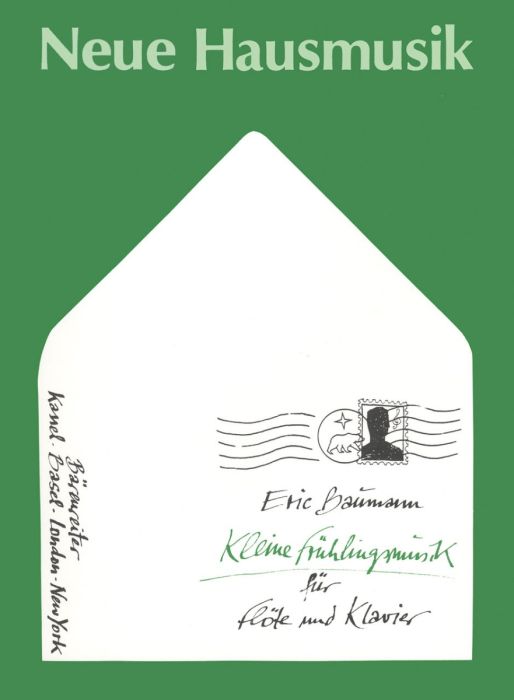 Neue Hausmusik
Eric Baumann
Kleine Frühlingsmusik
für
Flöte und Klavier
Bärenreiter
Kassel · Basel · London · New York